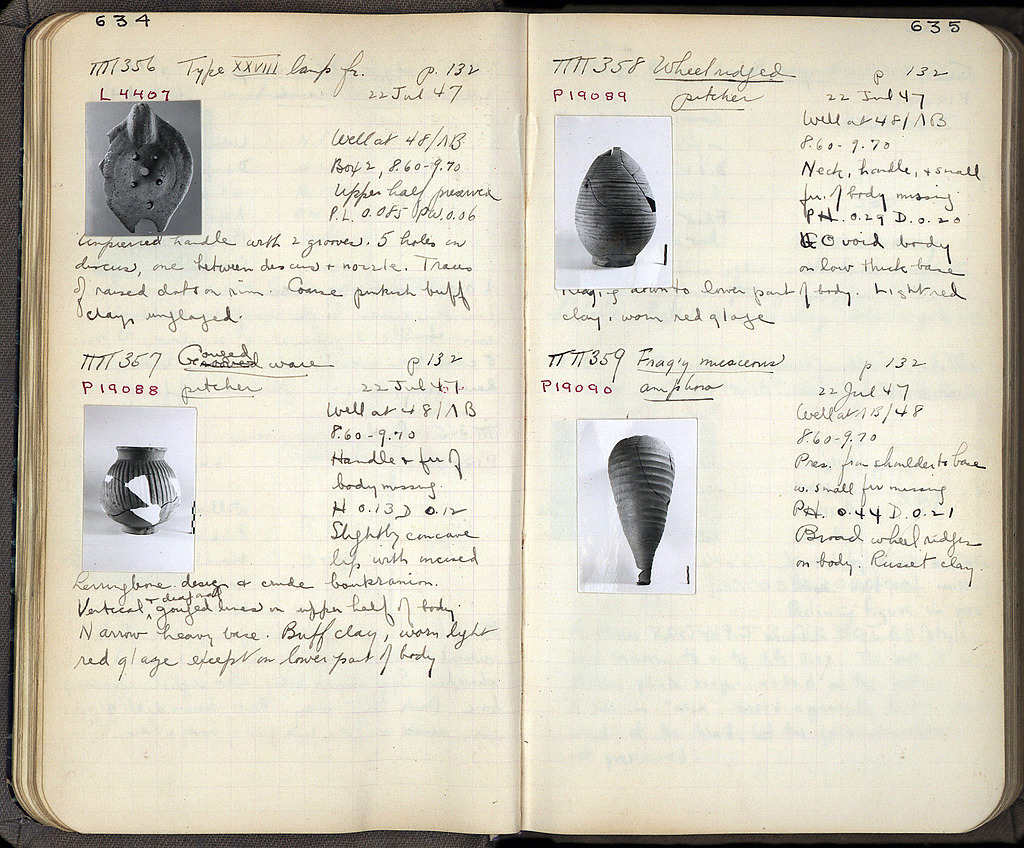 634
ΠΠ 356 Type XXVIII lamp fr. p. 132
L 4407 22 Jul 47
Well at 48/ΛB
Box 2, 8.60-9.70
Upper half preserved
P.L. 0.085 P.W. 0.06
Unpierced handle with 2 grooves. 5 holes in
discus, one between discus + nozzle. Traces
of raised dots on rim. Coarse pinkish buff
clay, unglazed.
ΠΠ 357 Gouged ware p 132
P19088 pitcher 22 Jul 47
Well at 48/ΛB
8.60-9.70
Handle + frr of
body missing.
H 0.13 D 0.12
Slightly concave
lip with incised
herringbone design & crude boukranion.
Vertical + diagonal gouged lines on upper half of body.
Narrow heavy base. Buff clay, worn light
red glaze except on lower part of body
635
ΠΠ 358 Wheelridged p 132
P19089 pitcher 22 Jul 47
Well at 48/ΛB
8.60-9.70
Neck, handle, + small
frr. of body missing.
PH. 0.29 D. 0.20
Ovoid body
on low thick base
down to lower part of body. Light red
clay, worn red glaze
ΠΠ 359 Frag'y micaceous p 132
P19090 amphora 22 Jul 47
Well at ΛB/48
8.60-9.70
Pres. from shoulder to base
w. small frr missing
PH. 0.44 D. 0.21
Broad wheel ridges
on body. Russet clay.